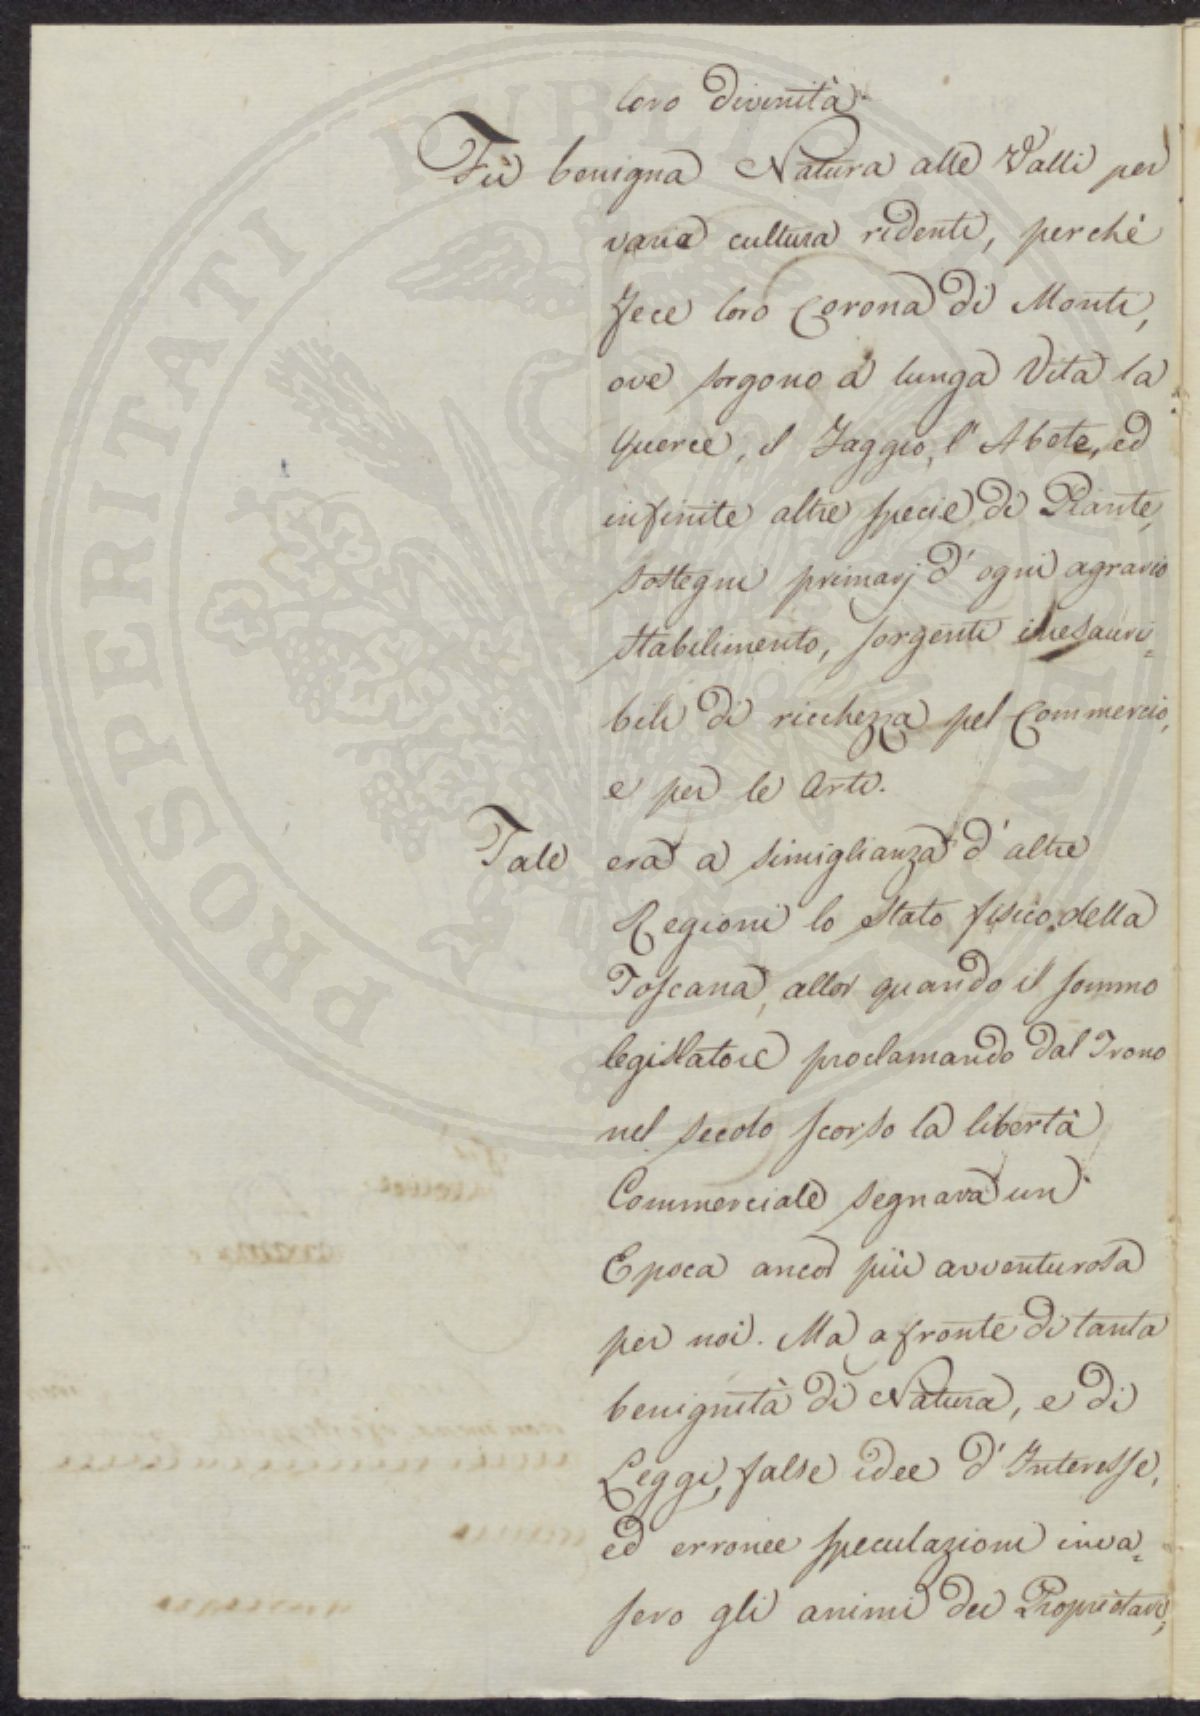 loro divinità
Fù benigna Natura alle Valli per
varia cultura ridenti, perchè
fece loro Corona di Monti,
ove sorgono a lunga Vita la
Querce, il Faggio, l'Abete, ed
infinite altre specie di Piante,
sostegni primarj d'ogni agrario
stabilimento, sorgenti inesauri-
bili di ricchezza pel Commercio,
e per le Arti.
Tale era a simiglianza d'altre
Regioni lo Stato fisico della
Toscana, allor quando il sommo
legislatore proclamando dal Trono
nel secolo scorso la libertà
Commerciale segnava un
Epoca ancor più avventurosa
per noi. Ma a fronte di tanta
benignità di Natura, e di
Leggi, false idee d'Interesse,
ed erronee speculazioni inva-
sero gli animi dei Proprietarj,
PROSPERITATI PUBLICAE